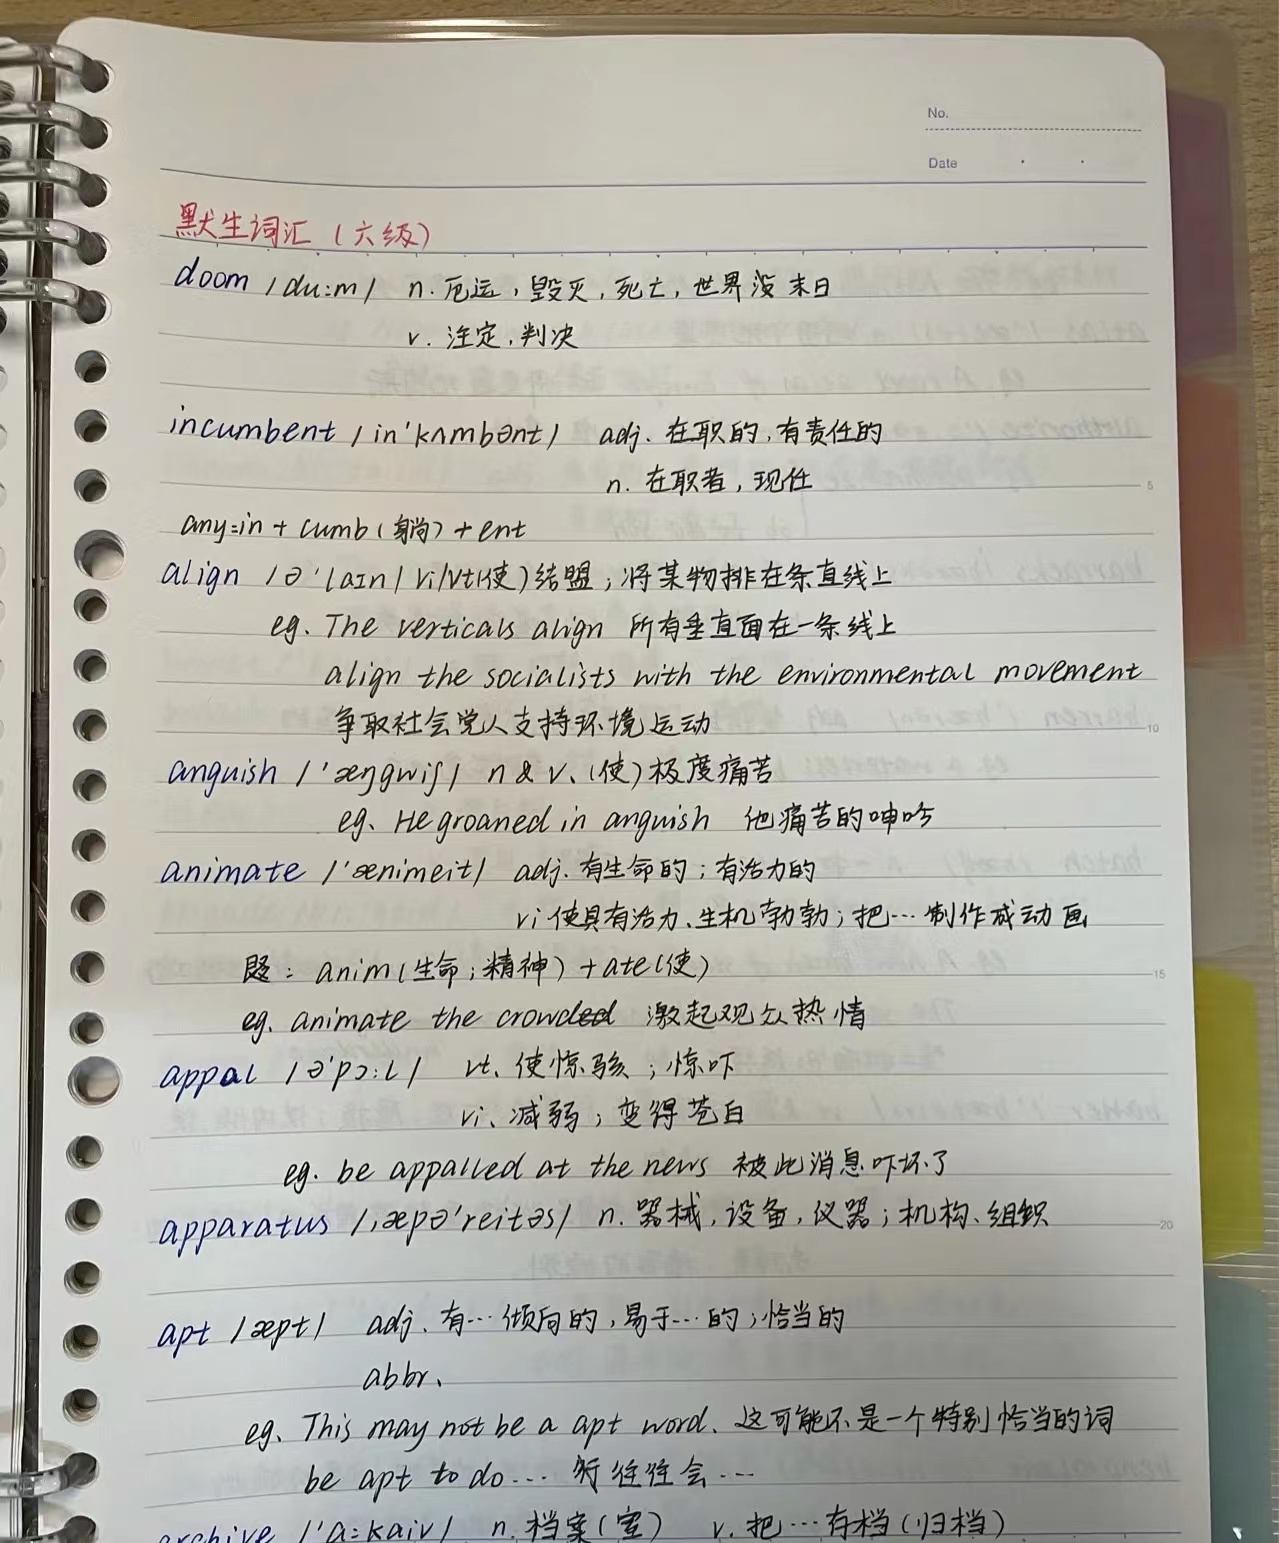 No.
Date
默生词汇（六级）
doom /du:m/ n. 厄运，毁灭，死亡，世界没末日
v. 注定，判决
incumbent /in'kʌmbənt/ adj. 在职的，有责任的
n. 在职者，现任
5
any=in + cumb（躺）+ent
align /ə'laɪn/ vi/vt(使）结盟；将某物排在条直线上
eg. The verticals align 所有垂直面在一条线上
align the socialists with the environmental movement
争取社会党人支持环境运动
10
anguish /'æŋgwiʃ/ n & v、（使）极度痛苦
eg、He groaned in anguish 他痛苦的呻吟
animate /'ænimeit/ adj. 有生命的；有活力的
vi 使具有活力、生机勃勃；把…制作成动画
题：anim(生命；精神）+ate(使）
15
eg. animate the crowd 激起观众热情
appal /ə'pɔ:l/ vt、使惊骇；惊吓
vi、减弱；变得苍白
eg. be appalled at the news 被此消息吓坏了
apparatus /ˌæpə'reitəs/ n. 器械，设备，仪器；机构、组织
20
apt /æpt/ adj、有…倾向的，易于…的；恰当的
abbr、
eg、This may not be a apt word、这可能不是一个特别恰当的词
be apt to do… 往往会…
archive /'a:kaiv/ n. 档案（室） v. 把…存档（归档）